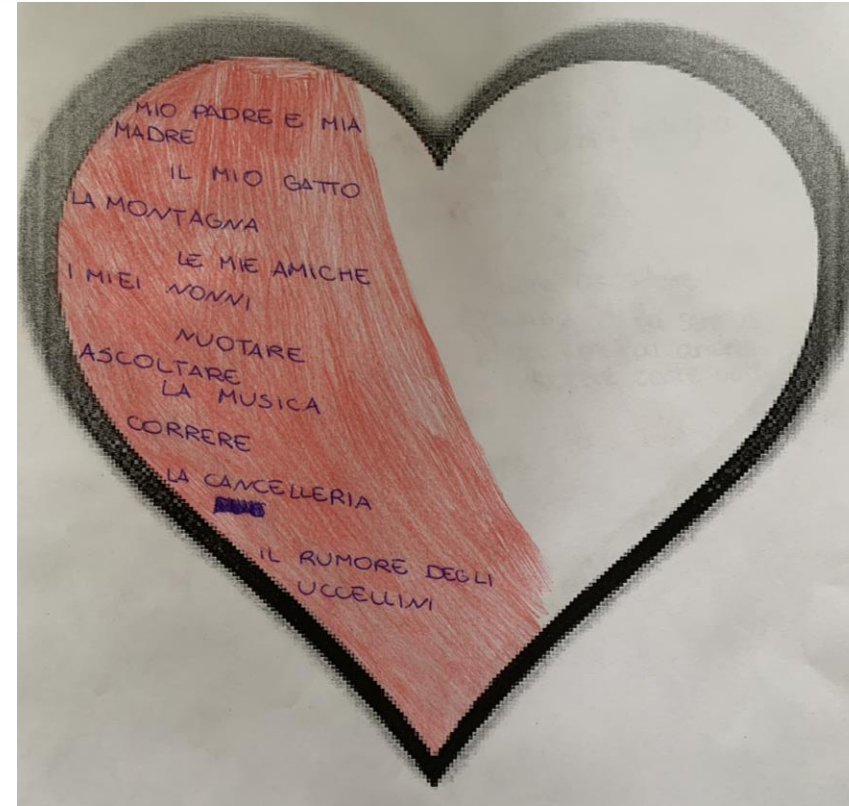 MIO PADRE E MIA
MADRE
IL MIO GATTO
LA MONTAGNA
LE MIE AMICHE
I MIEI NONNI
NUOTARE
ASCOLTARE
LA MUSICA
CORRERE
LA CANCELLERIA
IL RUMORE DEGLI
UCCELLINI